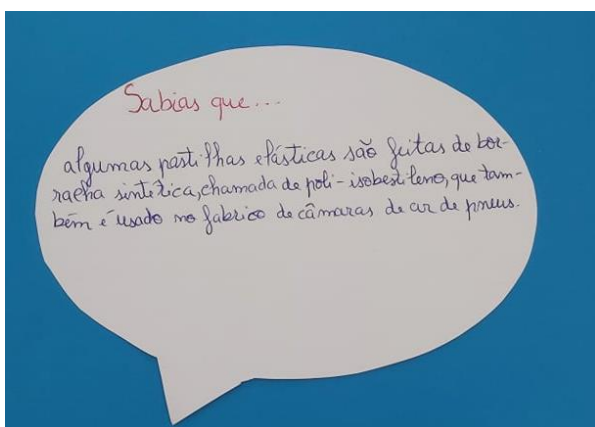 Sabias que...
algumas pastilhas elásticas são feitas de bor-
racha sintética, chamada de poli-isobestileno, que tam-
bém é usado no fabrico de câmaras de ar de pneus.